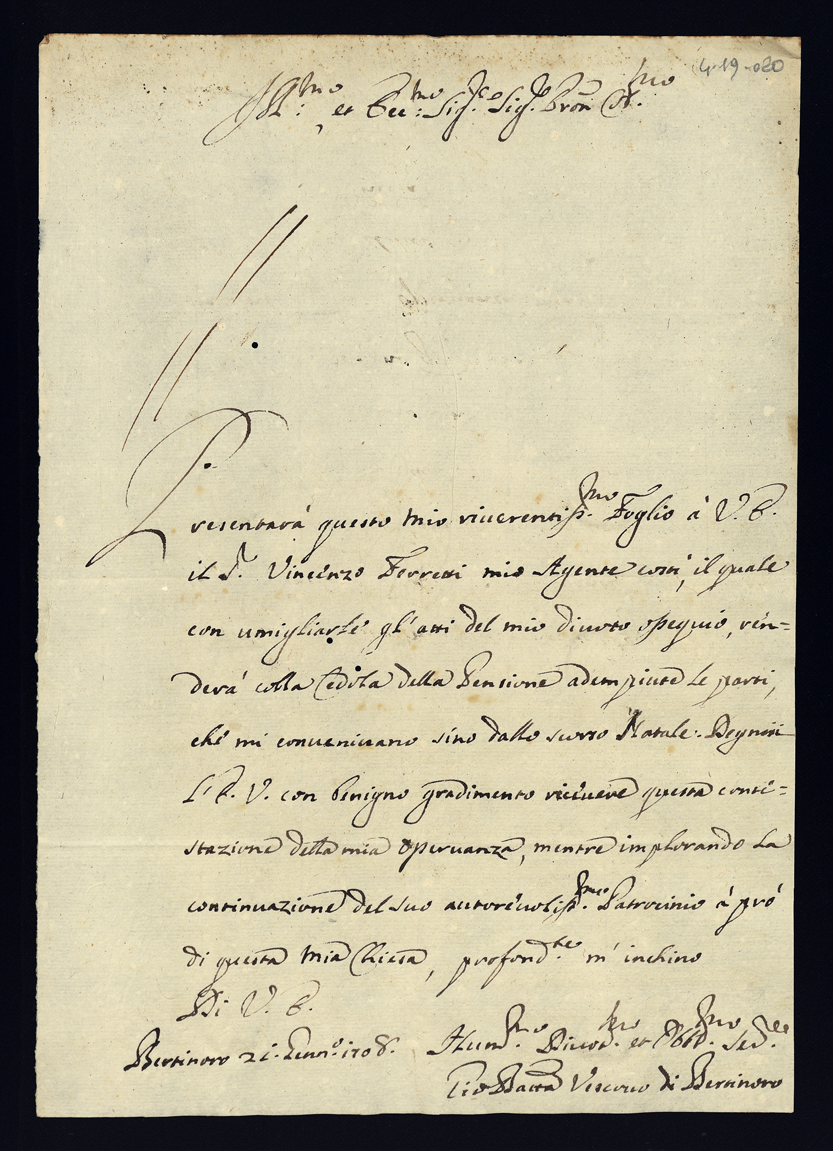 4-19-020
Ill.mo et Ecc.mo Sig.re Sig.re Pron Col.mo
Presentarà questo mio riverentiss.mo Foglio à V. E.
il S.r Vincenzo Ferretti mio Agente costì, il quale
con umigliarle gl'atti del mio divoto ossequio, ren=
derà colla Cedola della Pensione adempiute le parti,
che mi convenivano sino dallo scorso Natale. Degnisi
L'E. V. con benigno gradimento ricevere questa conte=
stazione della mia osservanza, mentre implorando la
continuazione del suo autorevoliss.mo Patrocinio à prò
di questa mia Chiesa, profond.te m'inchino
Di V. E.
Bertinoro 21. Genn.o 1708. Hum.mo Divot.mo et Obb.mo Ser.re
Gio Batta Vescovo di Bertinoro